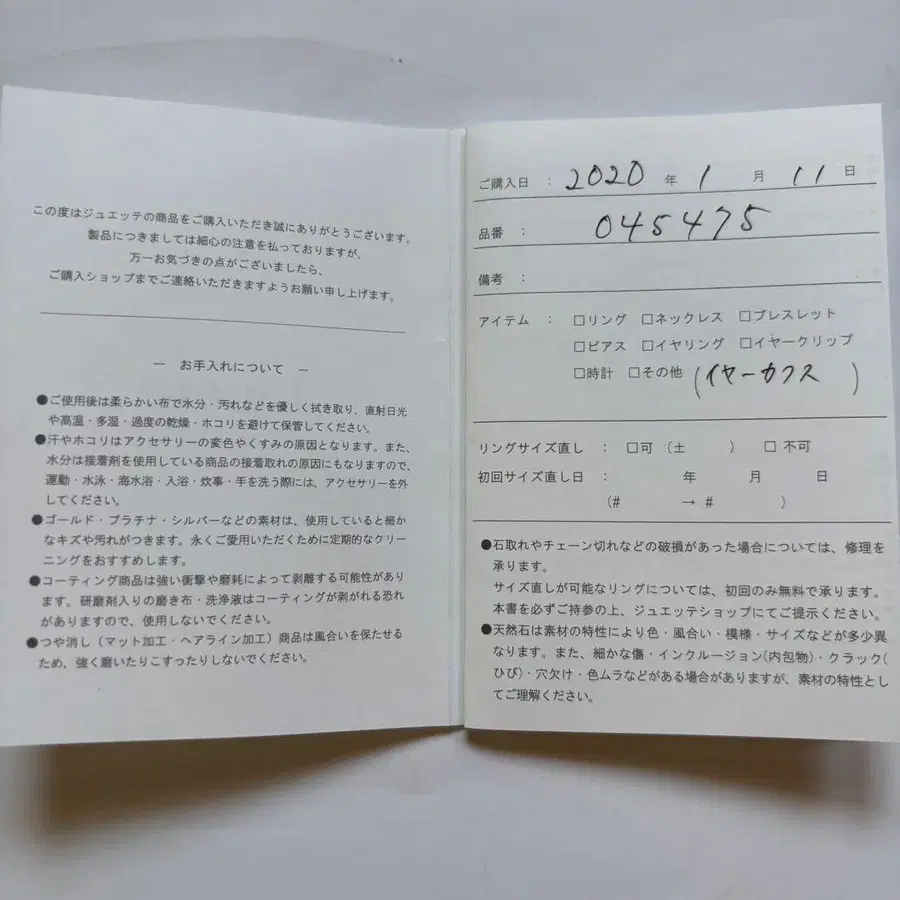 この度はジュエッテの商品をご購入いただき誠にありがとうございます。
製品につきましては細心の注意を払っておりますが、
万一お気づきの点がございましたら、
ご購入ショップまでご連絡いただきますようお願い申し上げます。
― お手入れについて ―
●ご使用後は柔らかい布で水分・汚れなどを優しく拭き取り、直射日光
や高温・多湿・過度の乾燥・ホコリを避けて保管してください。
●汗やホコリはアクセサリーの変色やくすみの原因となります。また、
水分は接着剤を使用している商品の接着取れの原因にもなりますので、
運動・水泳・海水浴・入浴・炊事・手を洗う際には、アクセサリーを外
してください。
●ゴールド・プラチナ・シルバーなどの素材は、使用していると細か
なキズや汚れがつきます。永くご愛用いただくために定期的なクリー
ニングをおすすめします。
●コーティング商品は強い衝撃や磨耗によって剥離する可能性があり
ます。研磨剤入りの磨き布・洗浄液はコーティングが剥がれる恐れ
がありますので、使用しないでください。
●つや消し（マット加工・ヘアライン加工）商品は風合いを保たせる
ため、強く磨いたりこすったりしないでください。
ご購入日 : 2020 年 1 月 11 日
品番 : 045475
備考 :
アイテム : □リング □ネックレス □ブレスレット
□ピアス □イヤリング □イヤークリップ
□時計 □その他 (イヤーカフス)
リングサイズ直し : □可 (± ) □ 不可
初回サイズ直し日 : 年 月 日
(# → # )
●石取れやチェーン切れなどの破損があった場合については、修理を
承ります。
サイズ直しが可能なリングについては、初回のみ無料で承ります。
本書を必ずご持参の上、ジュエッテショップにてご提示ください。
●天然石は素材の特性により色・風合い・模様・サイズなどが多少異
なります。また、細かな傷・インクルージョン(内包物)・クラック(
ひび)・穴欠け・色ムラなどがある場合がありますが、素材の特性とし
てご理解ください。